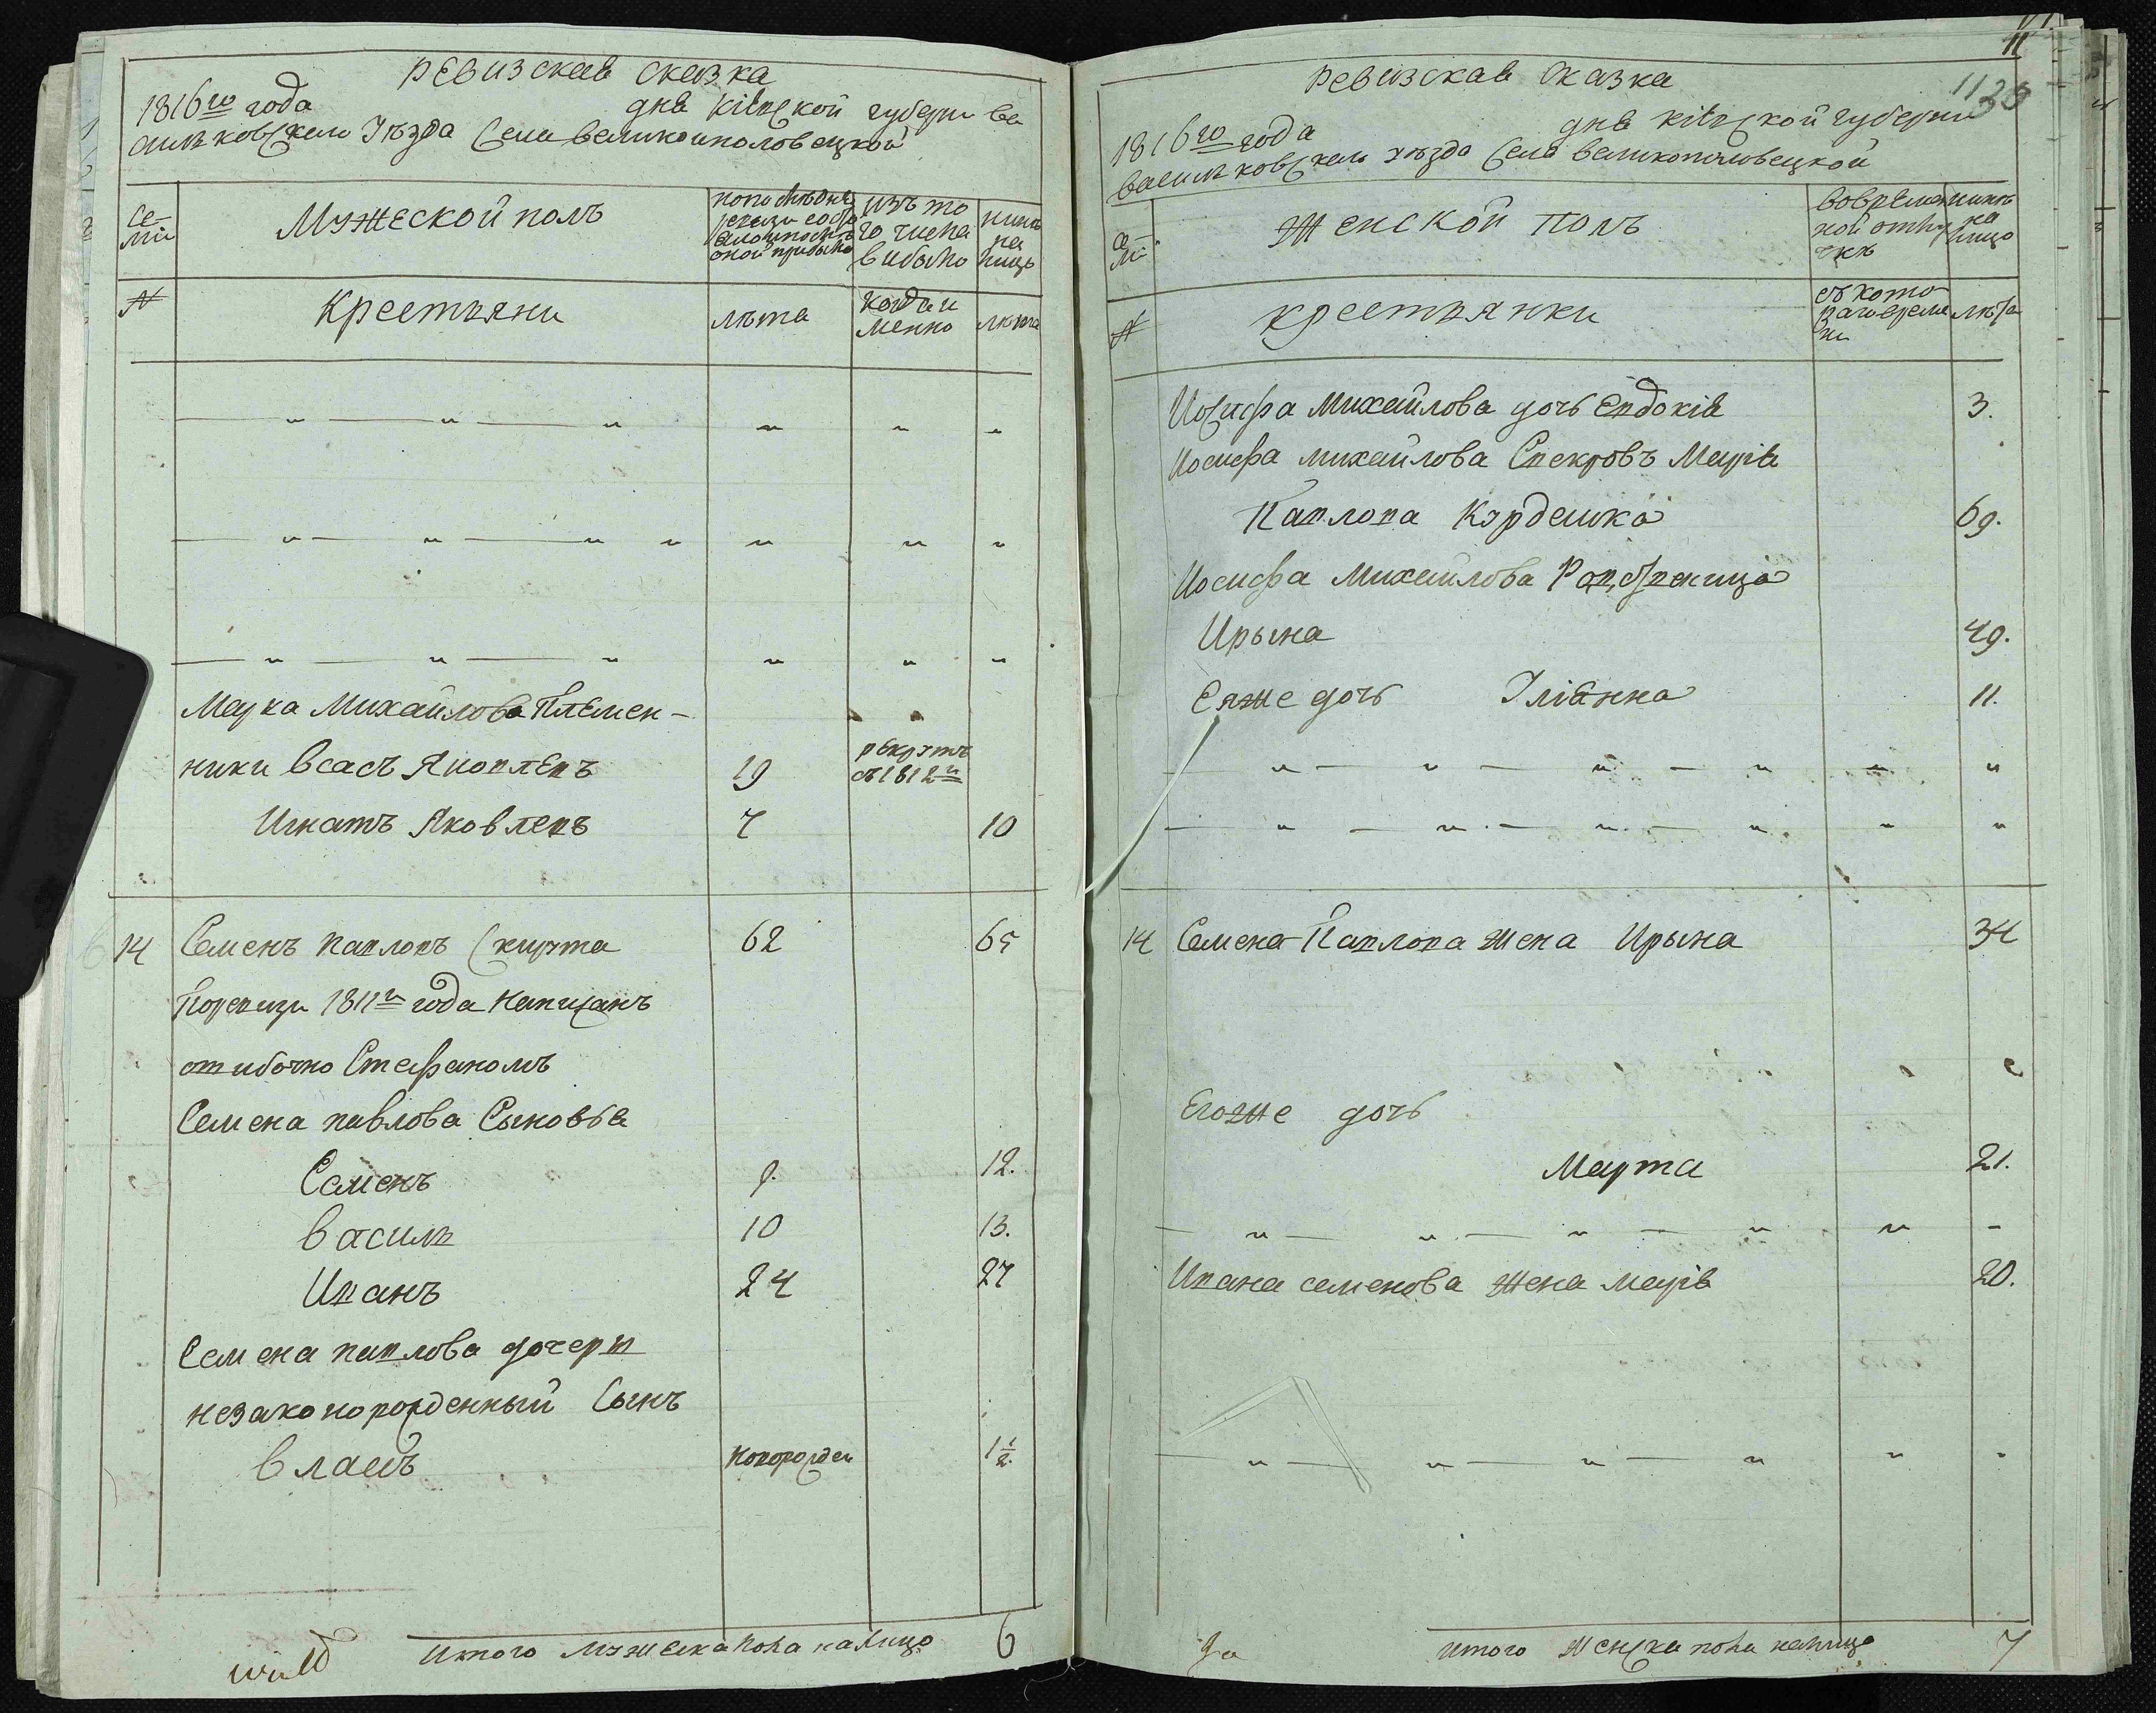 ревизская сказка
1816го года дня Кіевской губерни ва
силковскаго Уезда Села великополовецкой
Се-
мїи
Мужеской полъ
по последней
ревизи состо
яло и после
оной прибыло
изъ то
го числа
вибыло
ниня
на
лицо
N
Крестьяни
лета
когда и
менно
лета
Марка Михайлова Племен-
ники Власъ Яковлевъ 19 рекрутъ
съ 1812г
Игнатъ Яковлевъ 7 10
14 Семенъ павловъ Скирта 62 65
По ревизи 1811г года написанъ
отибочно Стефаномъ
Семена павлова Сыновья
Семенъ 9. 12.
василь 10 13.
Иванъ 24 27
Семена павлова дочеры
незаконорожденный Сынъ
власъ новорожден 1 1/2.
Итого мужеска пола налицо 6
11
1138
ревизская сказка
1816го года дня кіевской губерни
василковскаго уезда Села великополовецкой
се-
мїи
женской полъ
во времен
ной отлу
чке
ниня
на
лицо
N
крестьянки
съ кото
раго време
ни
лета
Иосифа Михайлова дочь Евдокія 3.
Иосифа михайлова Свекровъ Марія
Павлова Кордашка 69.
Иосифа Михайлова
Ирына 49.
Еяже дочь Уліянна 11.
14 Семена Павлова жена Ирына 34
Егоже дочь
Марта 21.
Ивана семенова жена марія 20.
итого женска пола налицо 7